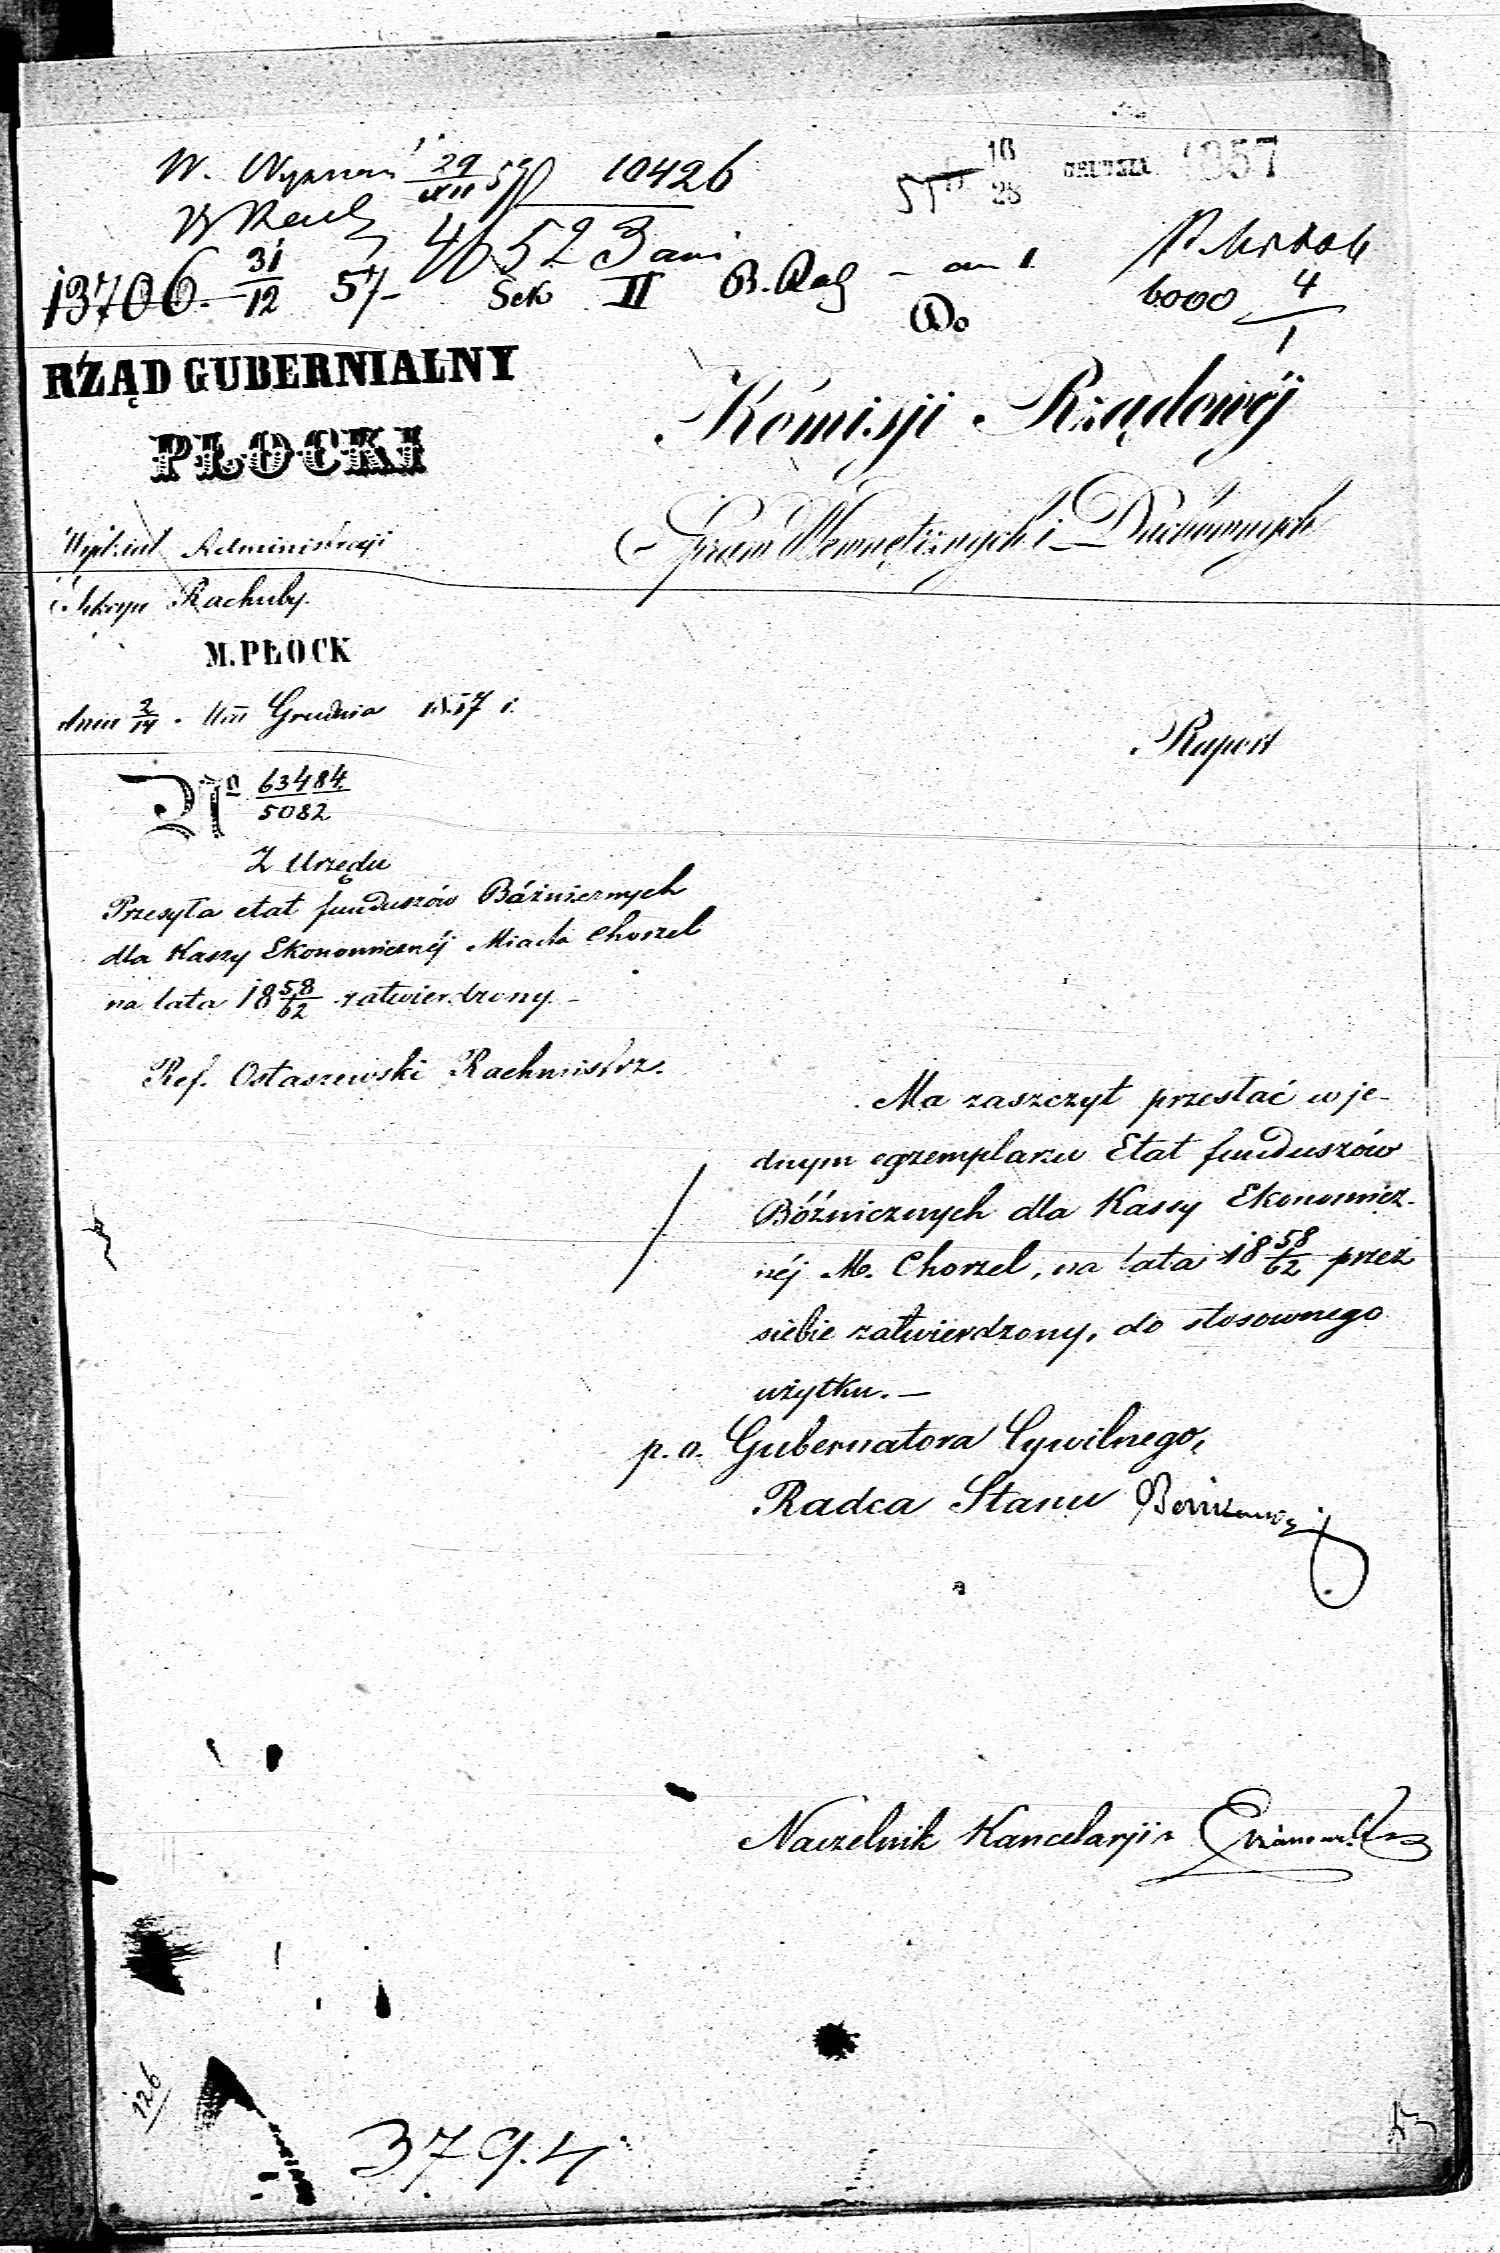 10426
29/XII 57
4652
13706. 31/12 57
Sek II
16/28 GRUDZIA 1857
6000 4/1
Do
RZĄD GUBERNIALNY
PŁOCKI
Komisji Rządowéj
Spraw Wewnętrznych i Duchownych
Wydział Administracji
Sekcya Rachuby.
M. PŁOCK
dnia 2/14 Grudnia 1857 r.
Raport
No 63484/5082
Z Urzędu
Przesyła etat funduszów Bóźnicznych
dla Kassy Ekonomicznéj Miasta Chorzel
na lata 18 58/62 zatwierdzony
Ref. Ostaszewski Rachmistrz.
Ma zaszczyt przesłać w je-
dnym egzemplarzu Etat funduszów
Bóźnicznych dla Kassy Ekonomicz-
néj M. Chorzel, na lata 18 58/62 przez
siebie zatwierdzony, do stosownego
użytku. —
p. o. Gubernatora Cywilnego,
Radca Stanu
Naczelnik Kancelarji
126
379.4